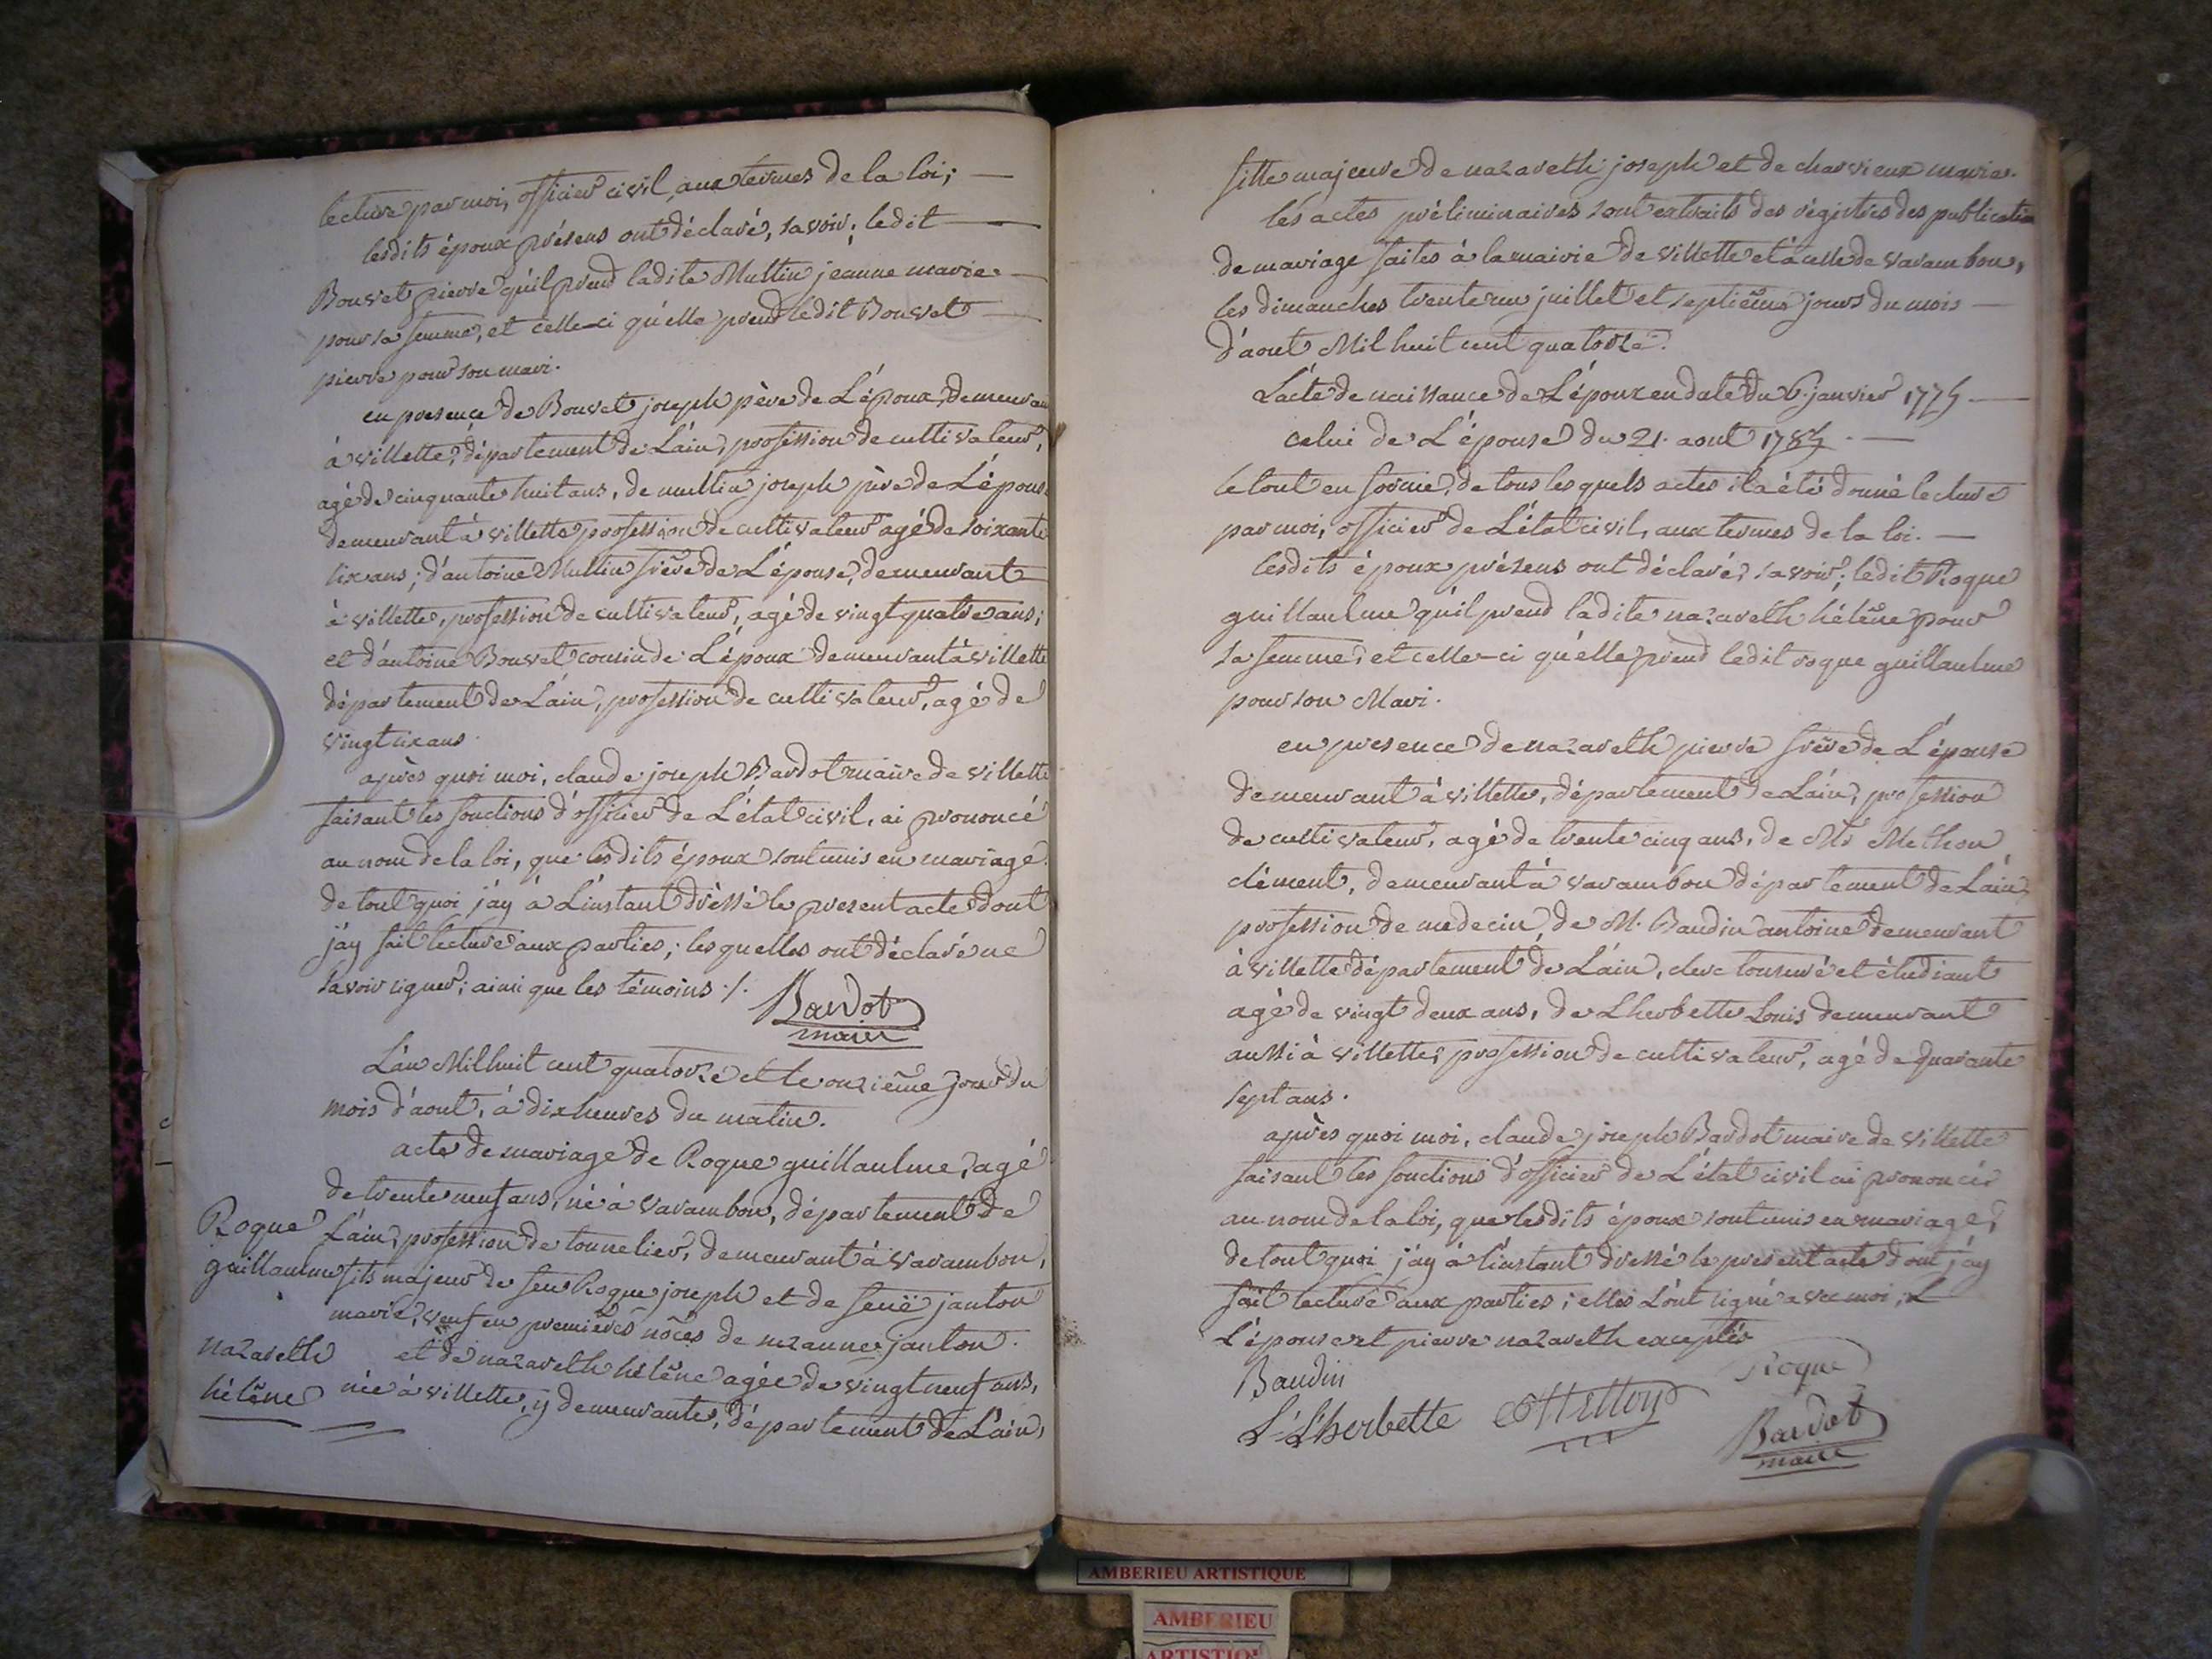 lecture par moi, officier civil, aux termes de la loi; —
lesdits époux présens ont déclaré, savoir; ledit —
Bouvet pierre qu'il prend ladite Multin jeanne marie —
pour sa femme, et celle-ci qu'elle prend ledit Bouvet —
pierre pour son mari.
en presence de Bouvet joseph père de L'époux, demeurant
à villette, département de L'ain, profession de cultivateur,
agé de cinquante huit ans, de multin joseph père de L'épouse
demeurant à villette profession de cultivateur agé de soixante
six ans; d'antoine Multin frère de L'épouse, demeurant
à villette, profession de cultivateur, agé de vingt quatre ans;
et d'antoine Bouvet cousin de L'époux demeurant à villette
département de L'ain, profession de cultivateur, agé de
vingt six ans.
après quoi moi, claude joseph Bardot maire de villette
faisant les fonctions d'officier de L'état civil, ai prononcé
au nom de la loi, que lesdits époux sont unis en mariage.
de tout quoi j'ay à L'instant dressé le present acte dont
j'ay fait lecture aux parties; lesquelles ont déclaré ne
savoir signer; ainsi que les témoins ./.
Bardot
maire
L'an Mil huit cent quatorze et le onzième jour du
mois d'aout, à dix heures du matin.
acte de mariage de Roque guillaulme, agé
de trente neuf ans, né à varambon, département de
Roque L'ain, profession de tonnelier, demeurant à varambon,
guillaulme fils majeur de feu Roque joseph et de feuë janton
marie, veuf en premières nôces de suzanne janton.
nazareth et de nazareth hélène agée de vingt neuf ans,
hélène née à villette, y demeurante, département de L'ain,
fille majeure de nazareth joseph et de charvieux marie.
les actes préliminaires sont extraits des régistres des publication
de mariage faites à la mairie de villette et à celle de varambon,
les dimanches trente un juillet et septième jours du mois —
d'aout Mil huit cent quatorze.
L'acte de naissance de L'époux en date du 6. janvier 1775 —
celui de L'épouse du 21. aout 1785 . —
le tout en forme, de tous lesquels actes il a été donné lecture
par moi, officier de L'état civil, aux termes de la loi. —
lesdits époux présens ont déclaré, savoir; ledit Roque
guillaulme qu'il prend ladite nazareth hélène pour
sa femme, et celle-ci qu'elle prend ledit roque guillaulme
pour son Mari.
en presence de nazareth pierre frère de L'épouse
demeurant à villette, département de L'ain, profession
de cultivateur, agé de trente cinq ans, de Mr Methon
clément, demeurant à varambon département de L'ain,
profession de medecin, de M. Baudin antoine demeurant
à villette département de L'ain, clerc tonsuré et étudiant
agé de vingt deux ans, de Lherbette Louis demeurant
aussi à villette, profession de cultivateur, agé de quarante
sept ans.
après quoi moi, claude joseph Bardot maire de villette
faisant les fonctions d'officier de L'état civil ai prononcé
au nom de la loi, que lesdits époux sont unis en mariage,
de tout quoi j'ay à l'instant dressé le present acte dont j'ay
fait lecture aux parties; elles L'ont signé avec moi,
L'épouse et pierre nazareth exceptés
Baudin
Roque
L. L'herbette
Bardot
maire
AMBERIEU ARTISTIQUE
AMBERIEU
ARTISTIQUE